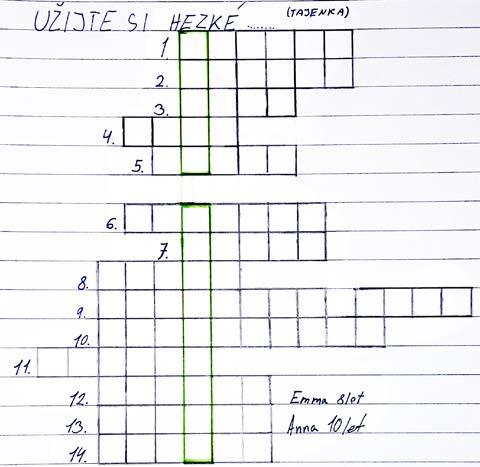 UŽIJTE SI HEZKÉ ........ (TAJENKA)
1
2.
3.
4.
5.
6.
7.
8.
9.
10.
11.
12.
Emma 8let
13.
Anna 10let
14.